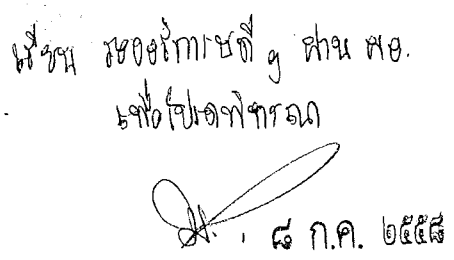 เรียน รองอธิการบดี ฯ ผ่าน ผอ.
เพื่อโปรดพิจารณา
๘ ก.ค. ๒๕๕๘